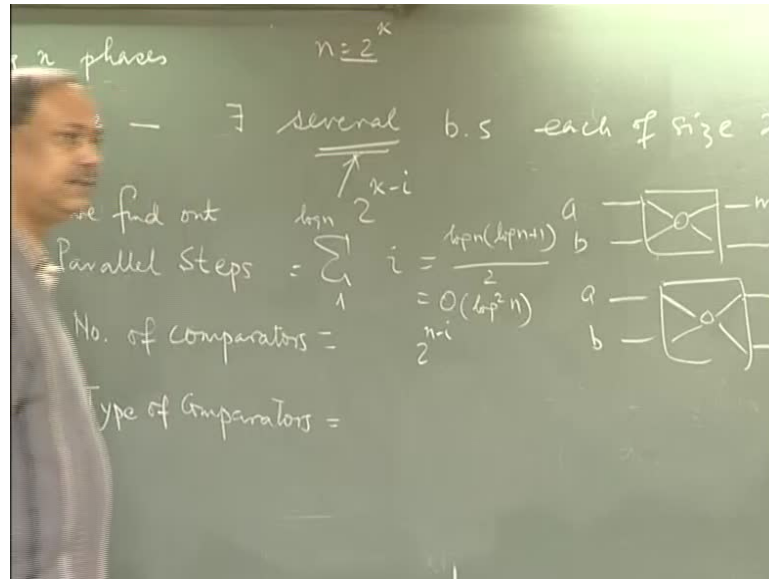 x phases n = 2^x
— ∃ several b.s each of size 2
2^{x-i}
we find out
Parallel Steps = \sum_{1}^{logn} i = \frac{logn(logn+1)}{2}
= O(log^2 n)
No. of comparators = 2^{n-i}
Type of Comparators =
a m
b
a
b